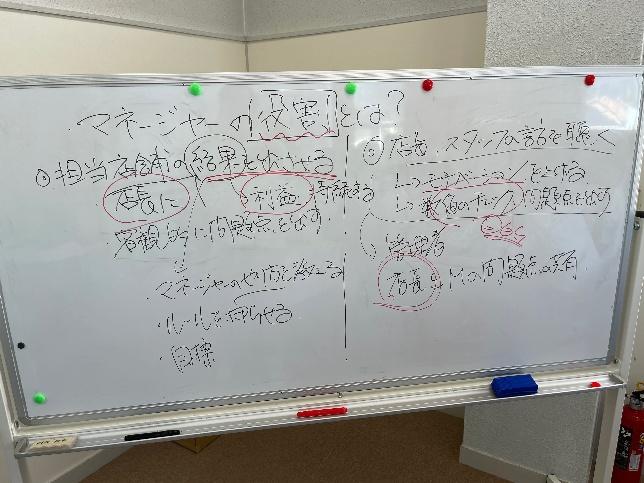 マネージャーの役割とは?
◎担当店舗の結果を出させる
店長に
利益
客観的に問題点を出す
マネージャーの
ルールを守らせる
・目標
◎店長、スタッフの話を聴く
↳モチベーションを上げる
↳数値のチェック 問題点を出す
管理する
店長とMの問題点の共有